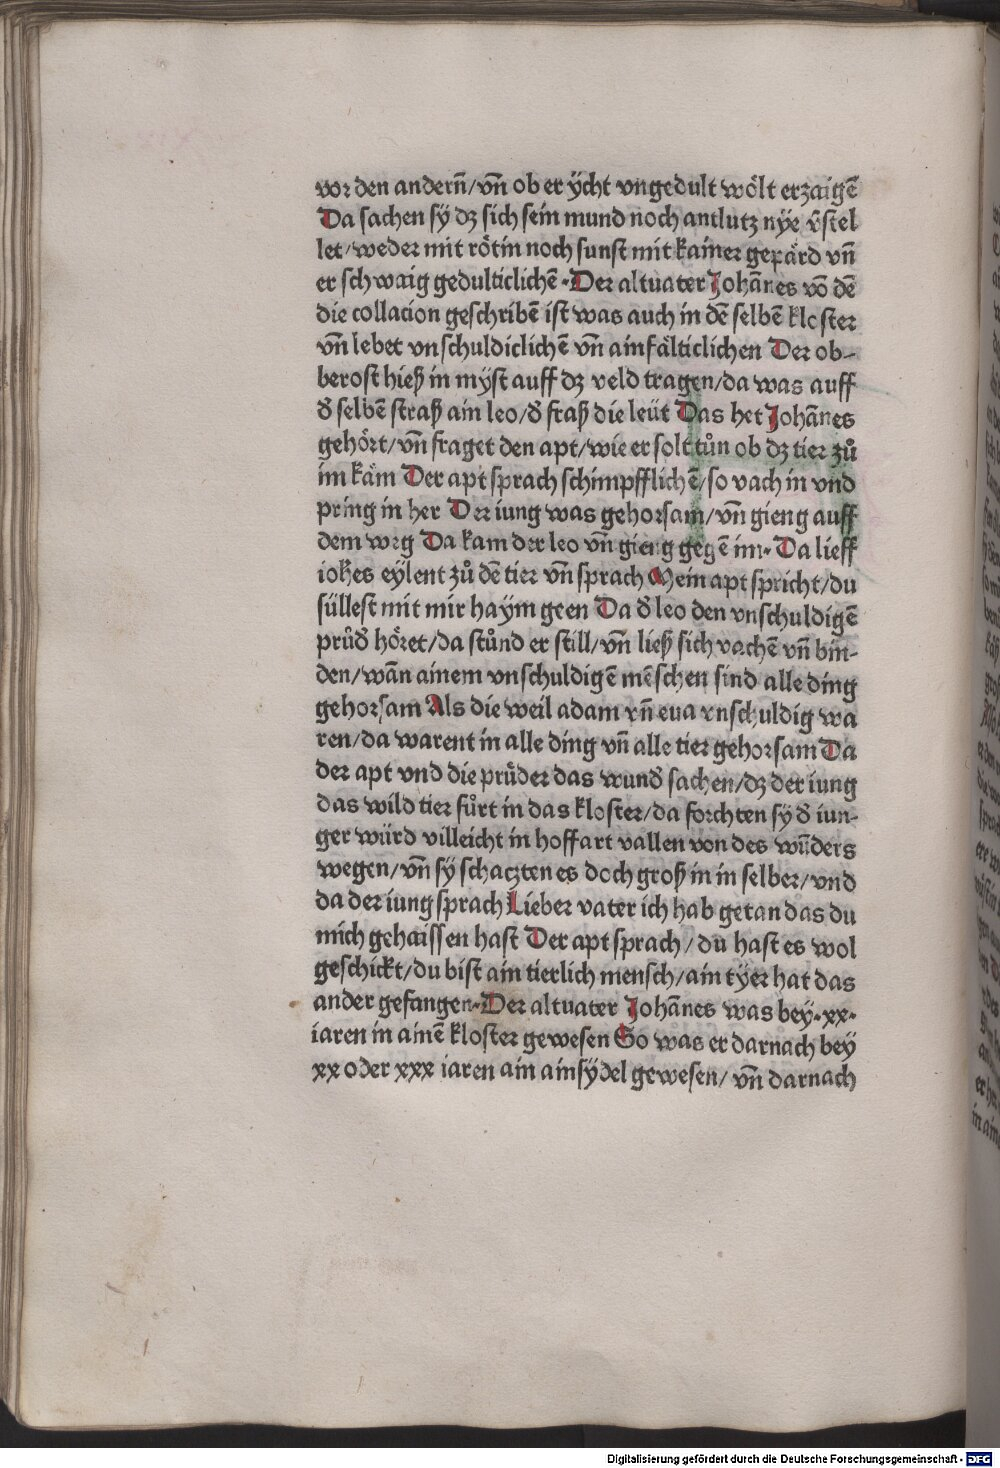 vor den andern̄/vn̄ ob er ÿcht vngedult wölt erzaigē
Da sachen sÿ dz sich sein mund noch antlutz nÿe v̄stel
let/weder mit rötin noch sunst mit kainer gepärd vn̄
er schwaig gedulticlichē·Der altuater Johānes vō dē
die collacion geschribē ist was auch in dē selbē kloster
vn̄ lebet vnschuldiclichē vn̄ ainfälticlichen Der ob-
berost hieß in mÿst auff dz veld tragen/da was auff
d̄ selbē straß ain leo/d̄ fraß die leüt Das het Johānes
gehört/vn̄ fraget den apt/wie er solt tůn ob dz tier zů
im käm Der apt sprach schimpfflichē/so vach in vnd
pring in her Der iung was gehorsam/vn̄ gieng auff
dem weg Da kam der leo vn̄ gieng gegē im· Da lieff
iohes eÿlent zů dē tier vn̄ sprach Mein apt spricht/du
süllest mit mir haÿm geen Da d̄ leo den vnschuldigē
průd̄ höret/da stůnd er still/vn̄ ließ sich vachē vn̄ bin-
den/wān ainem vnschuldigē mēschen sind alle ding
gehorsam Als die weil adam vn̄ eua vnschuldig wa
ren/da warent in alle ding vn̄ alle tier gehorsam Da
der apt vnd die prüder das wund̄ sachen/dz der iung
das wild tier fůrt in das kloster/da forchten sÿ d̄ iun-
ger würd villeicht in hoffart vallen von des wūders
wegen/vn̄ sÿ schaczten es doch groß in in selber/vnd
da der iung sprach Lieber vater ich hab getan das du
mich gehaissen hast Der apt sprach/du hast es wol
geschickt/du bist ain tierlich mensch/ain tÿer hat das
ander gefangen·Der altuater Johānes was beÿ·xx·
iaren in ainē kloster gewesen So was er darnach beÿ
xx oder xxx iaren ain ainsÿdel gewesen/vn̄ darnach
Digitalisierung gefördert durch die Deutsche Forschungsgemeinschaft - DFG